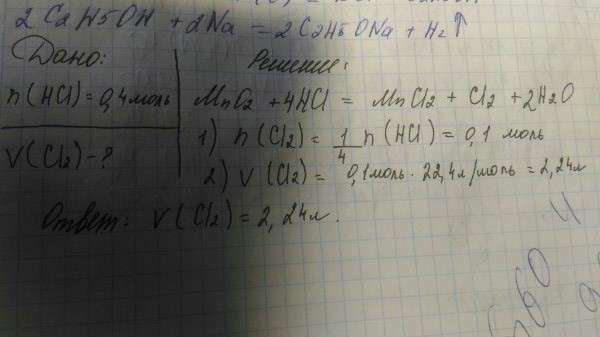 2 C2H5OH + 2Na = 2 C2H5ONa + H2↑
Дано:
n(HCl) = 0,4 моль
V(Cl2) - ?
Решение:
MnO2 + 4HCl = MnCl2 + Cl2 + 2H2O
1) n(Cl2) = 1/4 n(HCl) = 0,1 моль
2) V(Cl2) = 0,1 моль · 22,4 л/моль = 2,24 л
Ответ: V(Cl2) = 2,24 л.